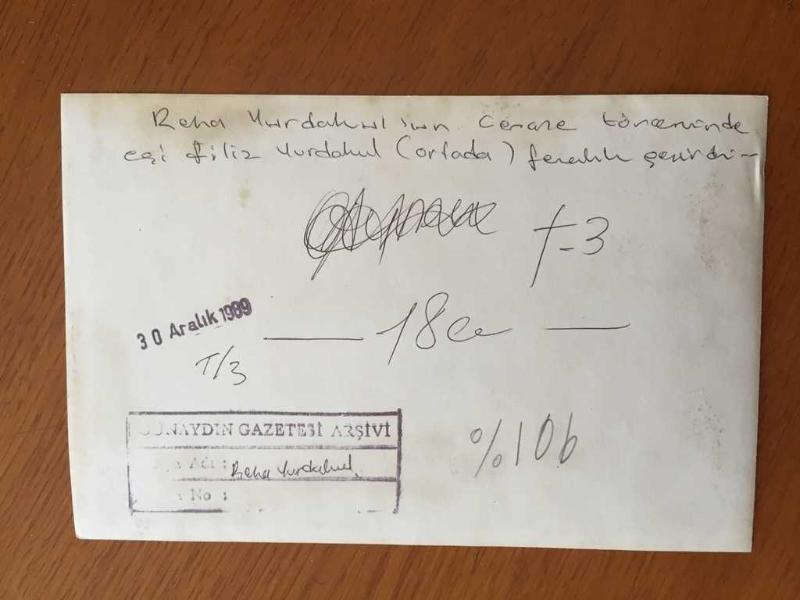 Reha Yurdakul'un Cenaze töreninde
eşi Filiz Yurdakul (ortada) fenalık geçirdi—
t-3
30 Aralık 1989
18
T/3
GÜNAYDIN GAZETESİ ARŞİVİ
Adı : Reha Yurdakul
No :
%106